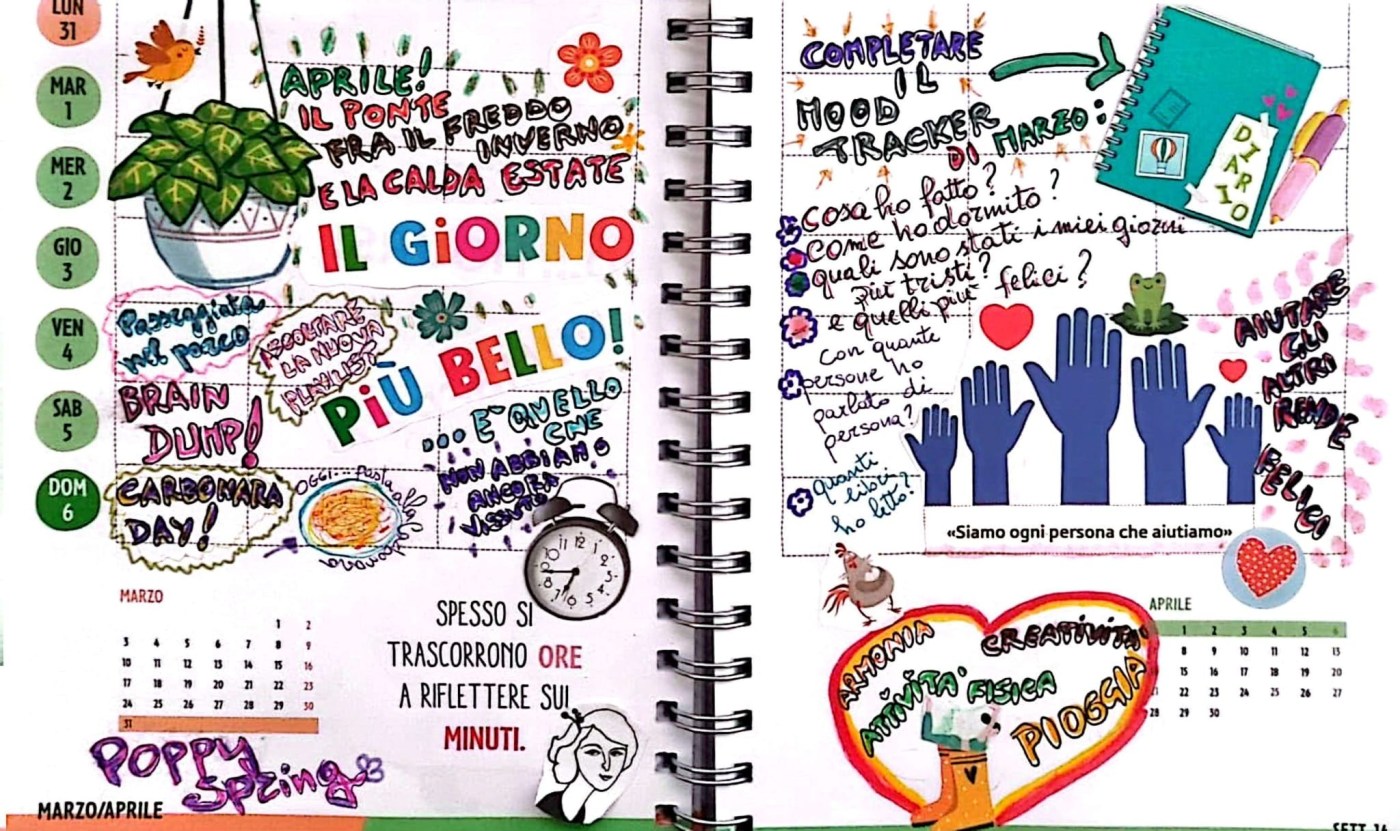 LUN
31
MAR
1
MER
2
GIO
3
VEN
4
SAB
5
DOM
6
APRILE!
IL PONTE
FRA IL FREDDO
INVERNO
E LA CALDA ESTATE
IL GiORNO
PiÙ BELLO!
... E' QUELLO
CHE
NON ABBIAMO
ANCORA
VISSUTO
Passeggiata
nel parco
ASCOLTARE
LA NUOVA
PLAYLIST
BRAIN
DUMP!
CARBONARA
DAY!
OGGI... pasta alla carbonara
11 12 1
MARZO
1 2
3 4 5 6 7 8 9
10 11 12 13 14 15 16
17 18 19 20 21 22 23
24 25 26 27 28 29 30
31
SPESSO SI
TRASCORRONO ORE
A RIFLETTERE SUI
MINUTI.
POPPY
Spring
MARZO/APRILE
COMPLETARE
IL
MOOD
TRACKER
DI MARZO:
DIARIO
Cosa ho fatto?
Come ho dormito?
quali sono stati i miei giorni
più tristi?
e quelli più felici?
con quante
persone ho
parlato di
persona?
quanti
libri
ho letto?
AIUTARE
GLI
ALTRI
RENDE
FELICI
«Siamo ogni persona che aiutiamo»
ARMONIA
CREATIVITA'
ATTIVITA' FISICA
PIOGGIA
APRILE
1 2 3 4 5 6
8 9 10 11 12 13
15 16 17 18 19 20
22 23 24 25 26 27
28 29 30
SETT. 14